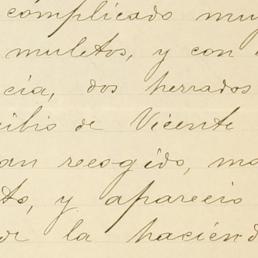 complicado muy
muletos, y con
cía, dos herrados
cibio de Vicente
an recogido, ma
to, y aparecio
de la haciend